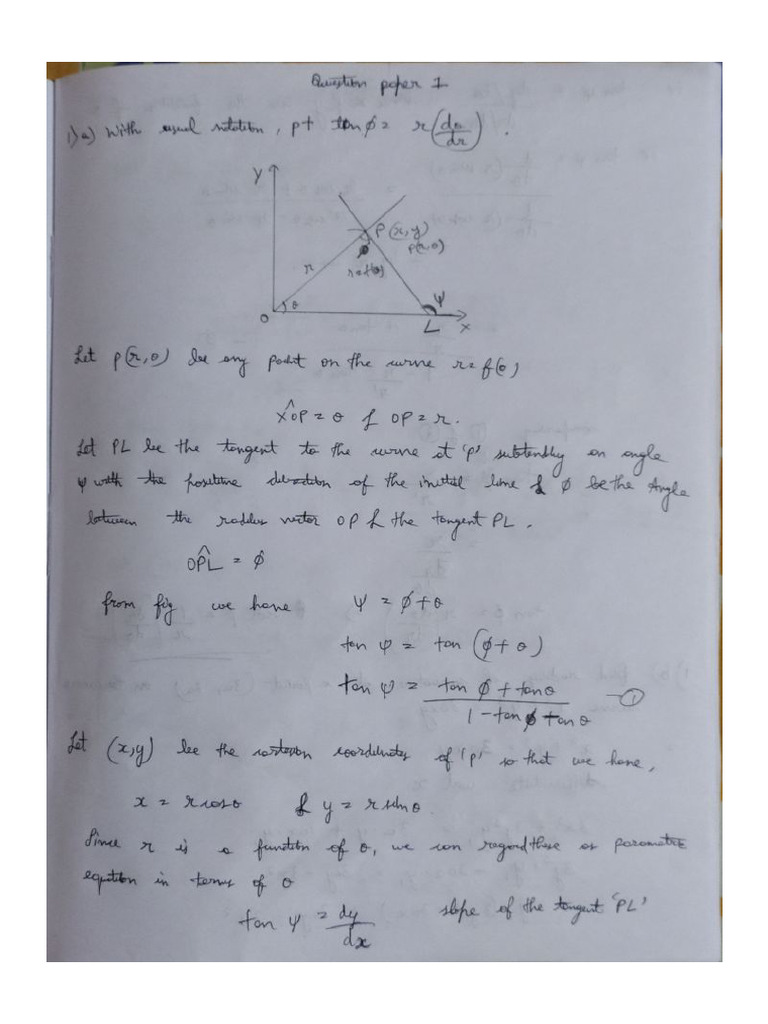 Question paper 1
1) a) With usual notation, pt tan ϕ = r(dθ/dr).
Y
P(x, y)
P(r, θ)
ϕ
r
r = f(θ)
θ
ψ
O
L
X
Let P(r, θ) be any point on the curve r = f(θ)
XÔP = θ & OP = r.
Let PL be the tangent to the curve at 'P' subtending an angle
ψ with the positive direction of the initial line & ϕ be the Angle
between the radius vector OP & the tangent PL.
OP̂L = ϕ
from fig we have ψ = ϕ + θ
tan ψ = tan (ϕ + θ)
tan ψ = (tan ϕ + tan θ)/(1 - tan ϕ tan θ) —①
Let (x, y) be the cartesian coordinates of 'P' so that we have,
x = r cosθ & y = r sinθ
Since r is a function of θ, we can regard these as parametric
equation in terms of θ
tan ψ = dy/dx slope of the tangent 'PL'